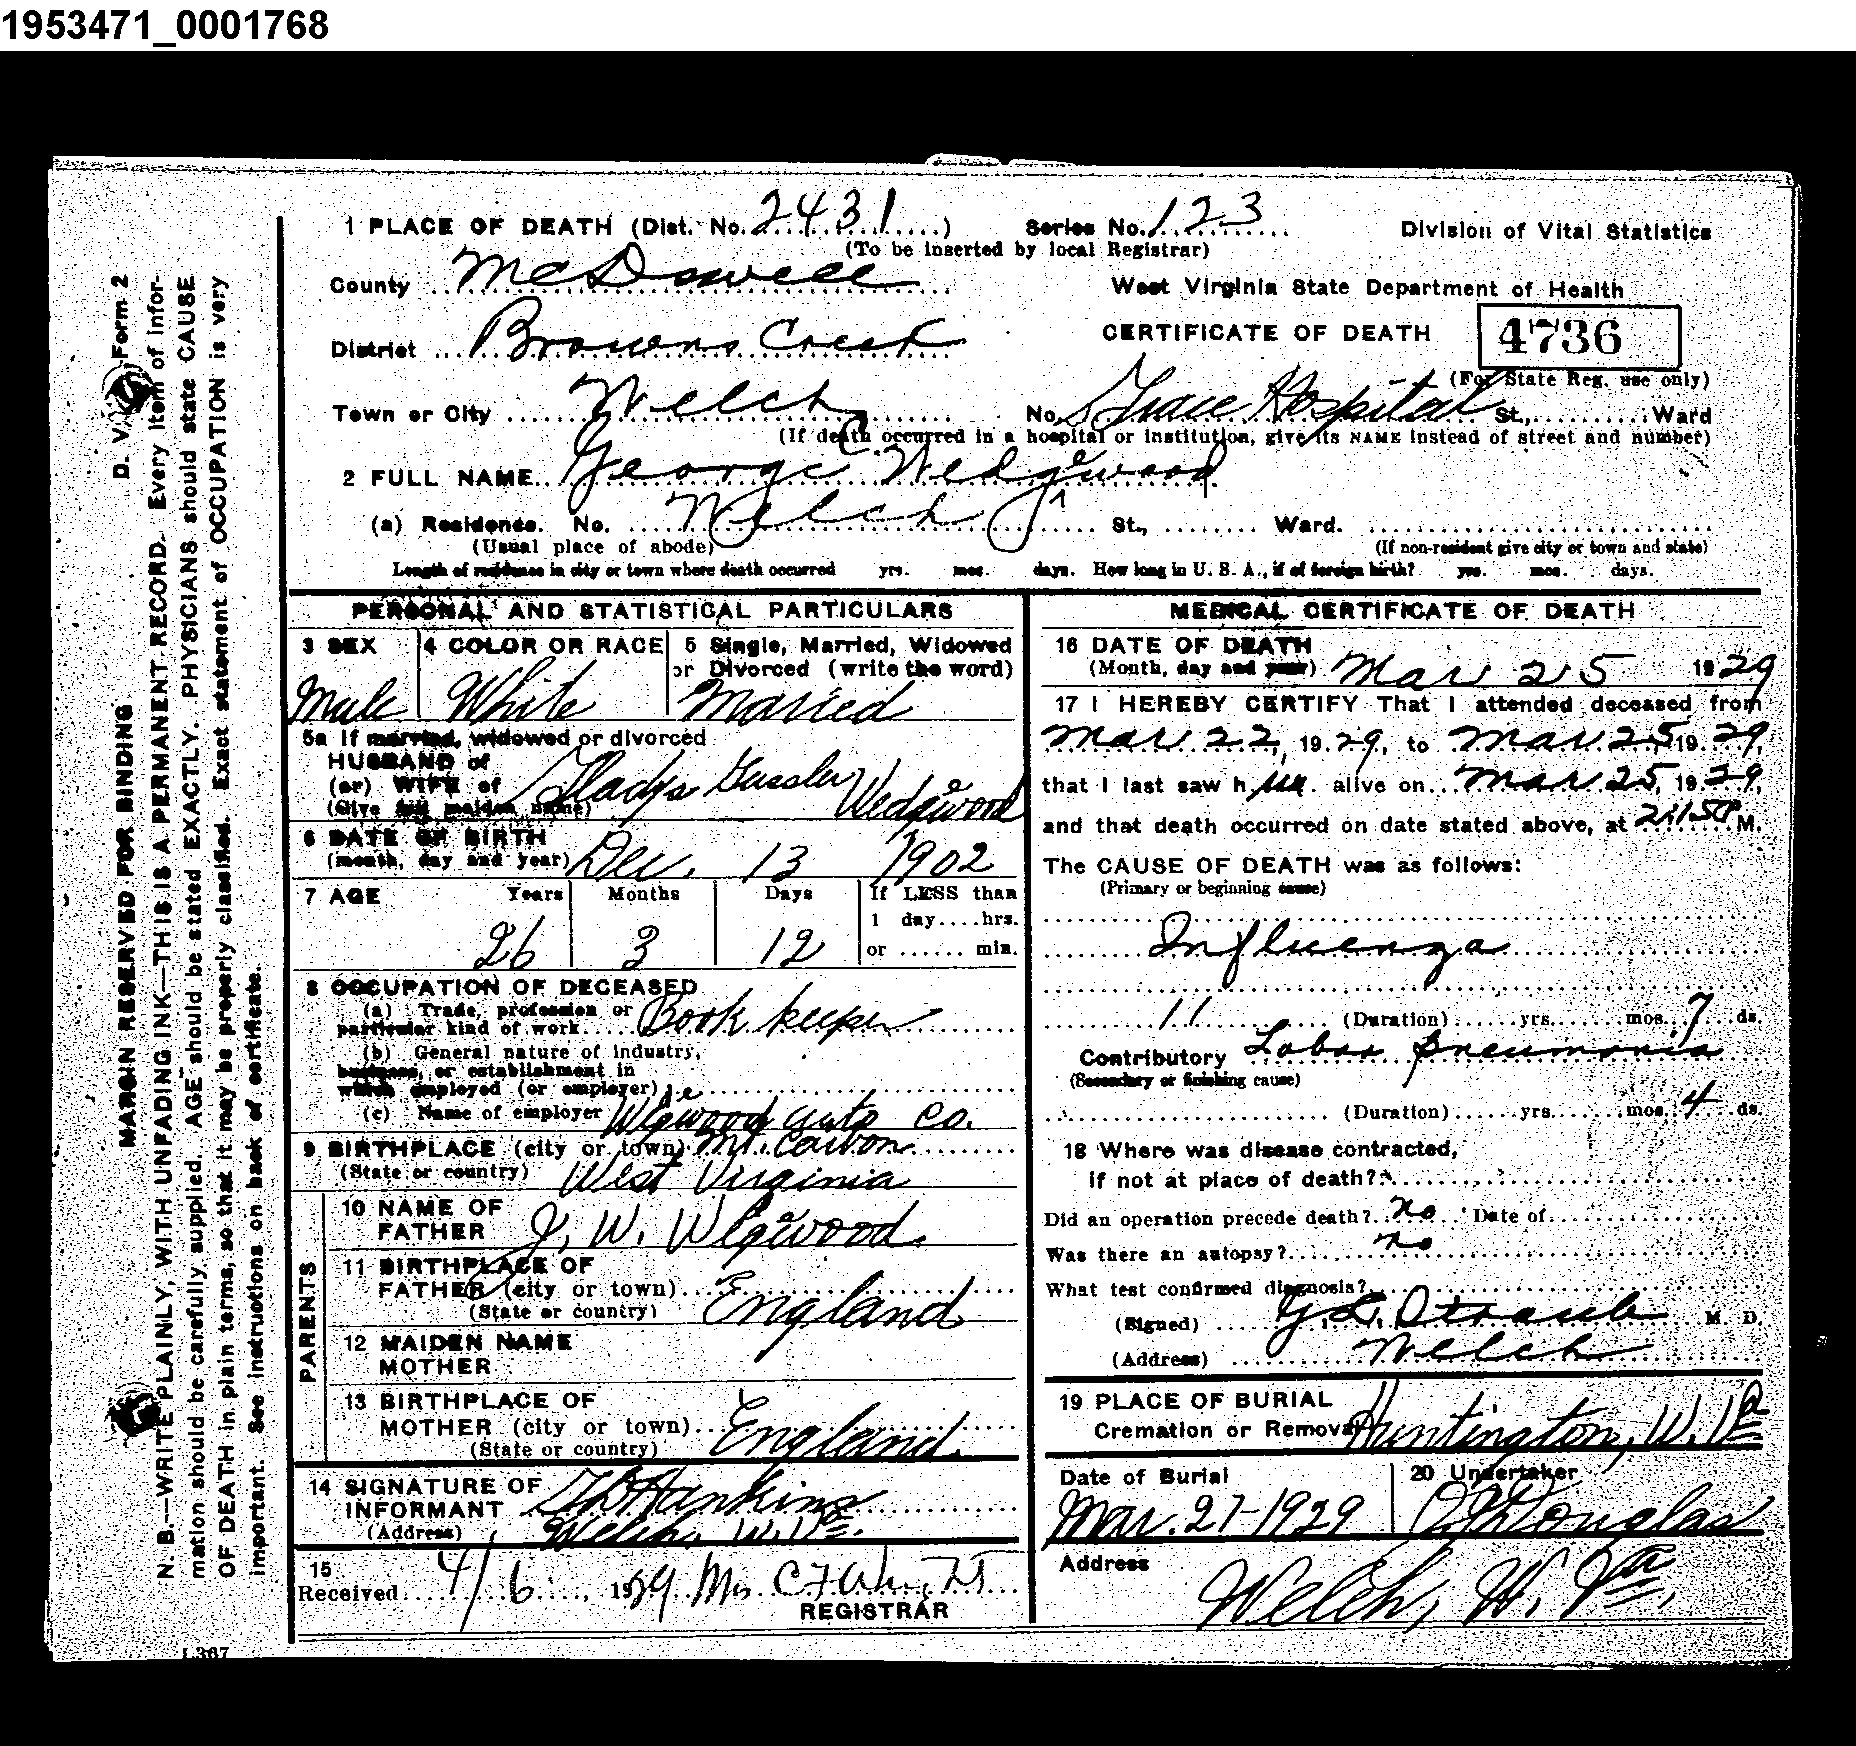 1953471_0001768
1 PLACE OF DEATH (Dist. No. 2431) Series No. 123 Division of Vital Statistics
(To be inserted by local Registrar)
County McDowell West Virginia State Department of Health
District Browns Creek CERTIFICATE OF DEATH 4736
(For State Reg. use only)
Town or City Welch No. Grace Hospital St., Ward
(If death occurred in a hospital or institution, give its NAME instead of street and number)
2 FULL NAME George C. Wedgewood
(a) Residence. No. Welch St., Ward.
(Usual place of abode) (If non-resident give city or town and state)
Length of residence in city or town where death occurred yrs. mos. days. How long in U. S. A., if of foreign birth? yrs. mos. days.
PERSONAL AND STATISTICAL PARTICULARS
3 SEX 4 COLOR OR RACE 5 Single, Married, Widowed
or Divorced (write the word)
Male White Married
5a If married, widowed or divorced
HUSBAND of
(or) WIFE of Gladys Wedgewood
(Give full maiden name)
6 DATE OF BIRTH
(month, day and year) Dec. 13 1902
7 AGE Years Months Days If LESS than
1 day....hrs.
26 3 12 or ...... min.
8 OCCUPATION OF DECEASED
(a) Trade, profession or
particular kind of work Book keeper
(b) General nature of industry,
business, or establishment in
which employed (or employer)
(c) Name of employer Wedgwood Auto Co.
9 BIRTHPLACE (city or town) Mt. Carbon
(State or country) West Virginia
PARENTS
10 NAME OF
FATHER J. W. Wegewood
11 BIRTHPLACE OF
FATHER (city or town)
(State or country) England
12 MAIDEN NAME
MOTHER
13 BIRTHPLACE OF
MOTHER (city or town)
(State or country) England
14 SIGNATURE OF
INFORMANT Hankins
(Address) Welch, W. Va.
15
Received 4/6, 1929 Mrs. C F
REGISTRAR
MEDICAL CERTIFICATE OF DEATH
16 DATE OF DEATH
(Month, day and year) Mar 25 1929
17 I HEREBY CERTIFY That I attended deceased from
Mar 22, 1929, to Mar 25 1929,
that I last saw h alive on Mar 25, 1929,
and that death occurred on date stated above, at M.
The CAUSE OF DEATH was as follows:
(Primary or beginning cause)
Influenza
11 (Duration) yrs. mos. 7 ds.
Contributory Lobar Pneumonia
(Secondary or finishing cause)
(Duration) yrs. mos. 4 ds.
18 Where was disease contracted,
if not at place of death?
Did an operation precede death? no Date of
Was there an autopsy? no
What test confirmed diagnosis?
(Signed) G. L. Straub M. D.
(Address) Welch
19 PLACE OF BURIAL
Cremation or Removal Huntington, W. Va
Date of Burial 20 Undertaker
Mar. 27-1929 Douglas
Address
Welch, W. Va.
D. V. S. Form 2
MARGIN RESERVED FOR BINDING
N. B.—WRITE PLAINLY, WITH UNFADING INK—THIS IS A PERMANENT RECORD. Every item of infor-
mation should be carefully supplied. AGE should be stated EXACTLY. PHYSICIANS should state CAUSE
OF DEATH in plain terms, so that it may be properly classified. Exact statement of OCCUPATION is very
important. See instructions on back of certificate.